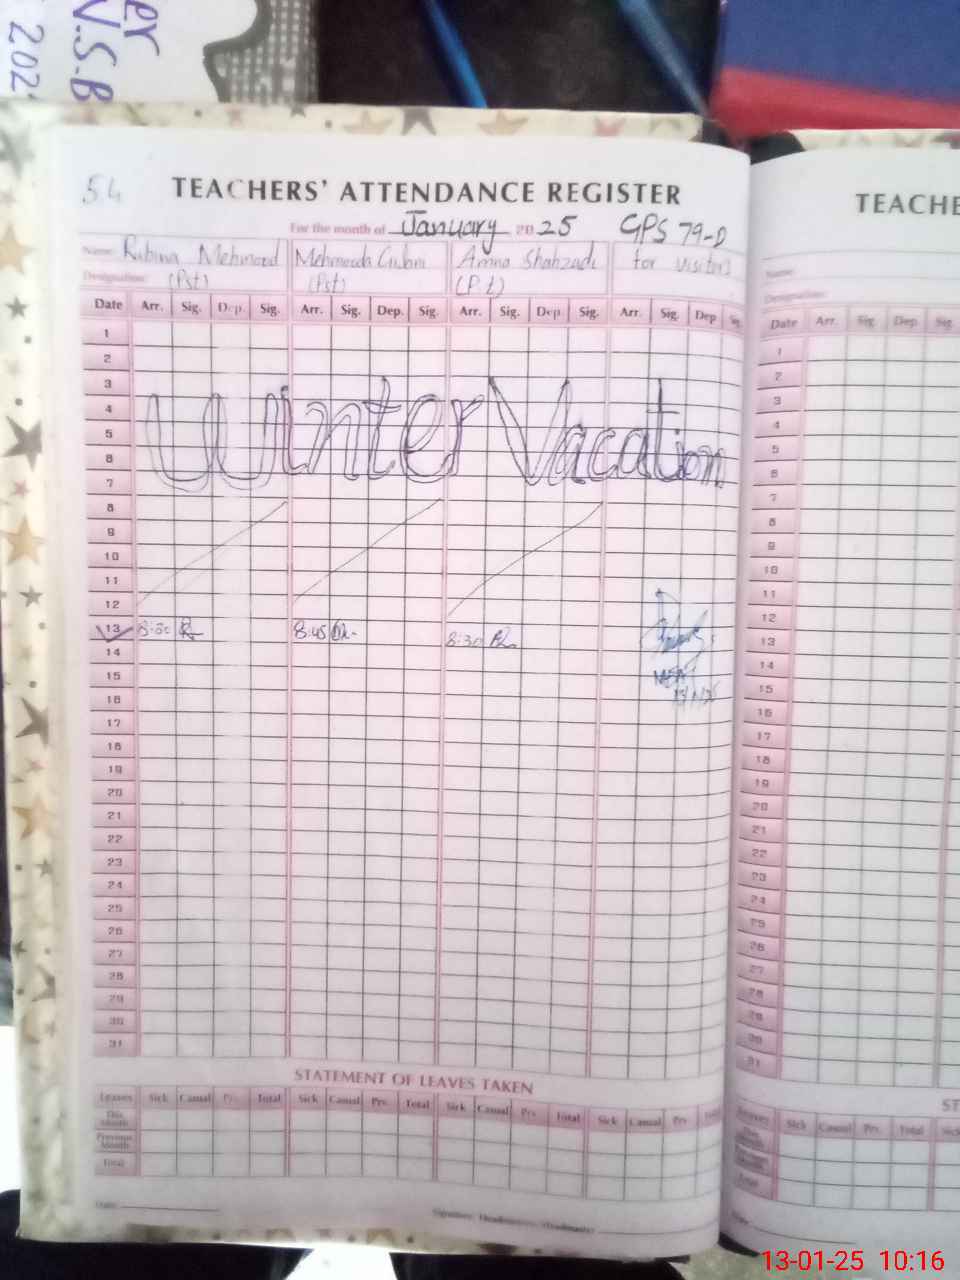 EY
V.S.B
202
54 TEACHERS' ATTENDANCE REGISTER
For the month of January 2025 GPS 79-D
Name: Rubina Mehmood
(Pst)
Amna Shahzadi
for visitors
Designation:
Date Arr. Sig. Dep. Sig. Arr. Sig. Dep. Sig. Arr. Sig. Dep. Sig. Arr. Sig. Dep Sig.
1
2
3
4
5
6
7
Winter Vacation
8
9
10
11
12
13 8:30 8:45 8:30
13/1/25
14
15
16
17
18
19
20
21
22
23
24
25
26
27
28
29
30
31
STATEMENT OF LEAVES TAKEN
Leaves Sick Casual Prv. Total Sick Casual Prv. Total Sick Casual Prv. Total Sick Casual Prv.
This Month
Previous Month
Total
Date:
Signature Headmistress/Headmaster
TEACHE
Name:
Designation:
Date Arr. Sig. Dep. Sig.
1
2
3
4
5
6
7
8
9
10
11
12
13
14
15
16
17
18
19
20
21
22
23
24
25
26
27
28
29
30
31
ST
Leaves Sick Casual Prv. Total Sick
Total
13-01-25 10:16